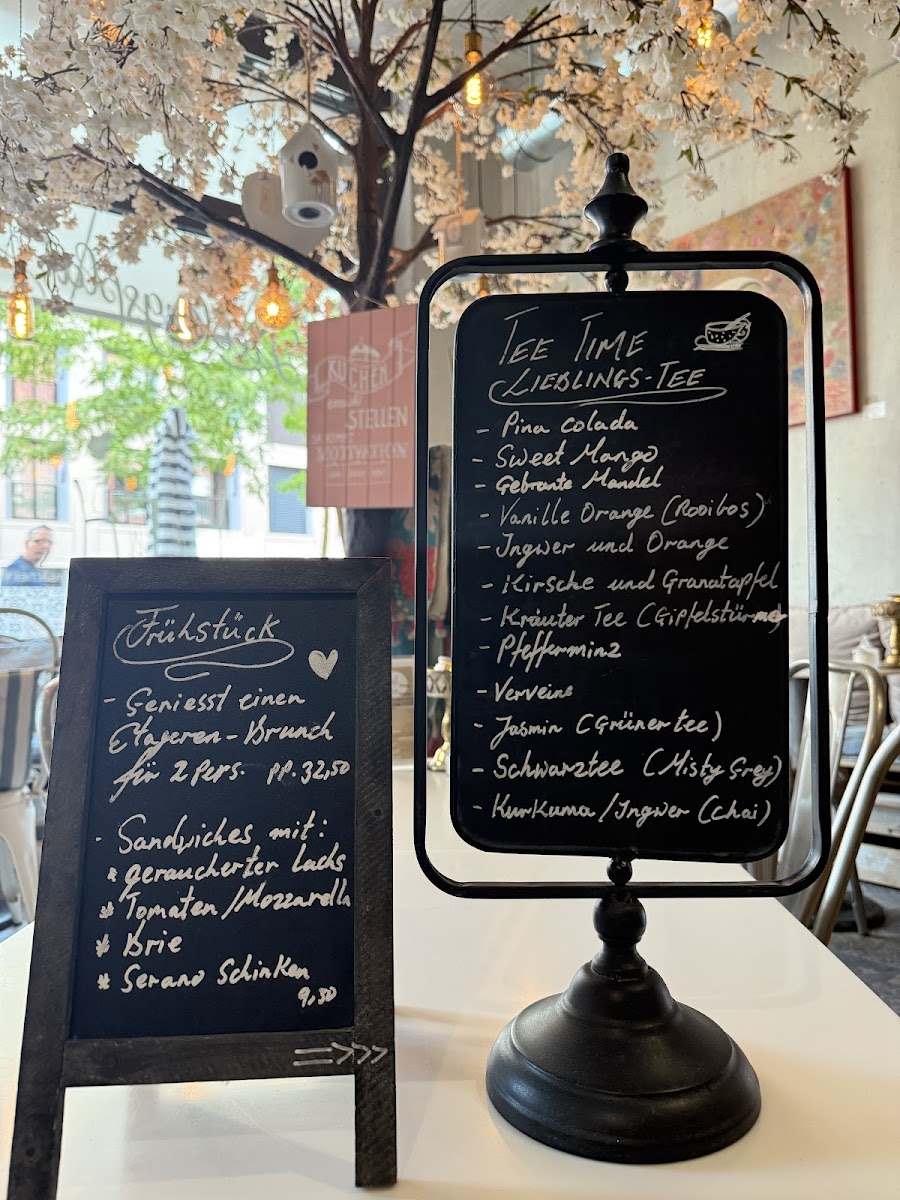 Frühstück
- Geniesst einen
Etageren-Brunch
für 2 Pers. pp. 32,50
- Sandwiches mit:
* geraucherter Lachs
* Tomaten/Mozzarella
* Brie
* Serano Schinken
9,50
=>>>
KUCHEN
STELLEN
MOTIVATION
TEE TIME
LIEBLINGS-TEE
- Pina colada
- Sweet Mango
- Gebrante Mandel
- Vanille Orange (Rooibos)
- Ingwer und Orange
- Kirsche und Granatapfel
- Kräuter Tee (Gipfelstürmer)
- Pfefferminz
- Verveine
- Jasmin (Grüner tee)
- Schwarztee (Misty Grey)
- Kurkuma/Ingwer (Chai)